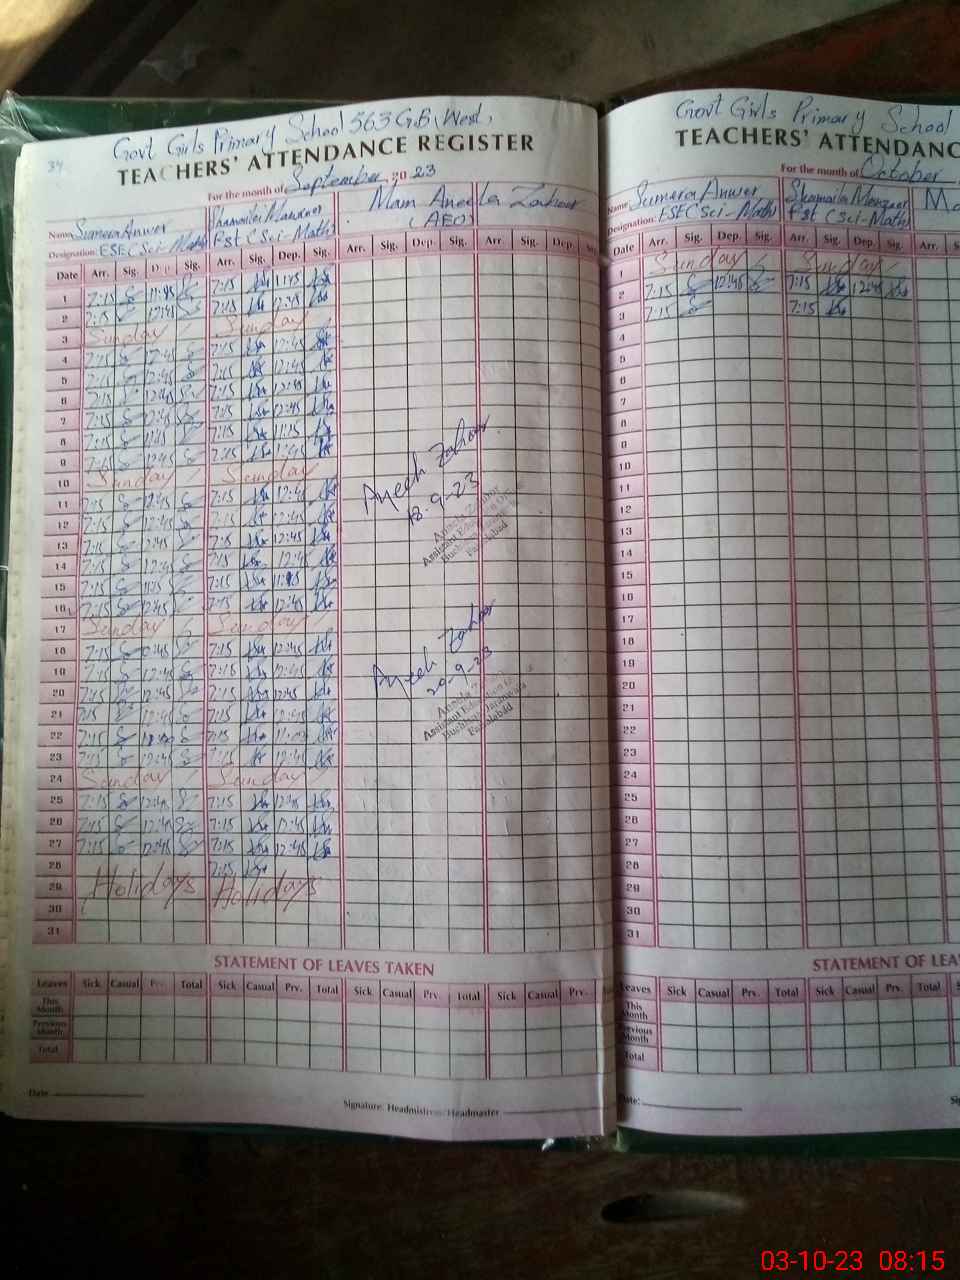 34
Govt Girls Primary School 563 G.B, West,
TEACHERS' ATTENDANCE REGISTER
For the month of September 20 23
Name Sumera Anwer
Designation: ESE (Sci-Math)
Est (Sci-Math)
Mam Aneela Zahoor
(AEO)
Date Arr. Sig. Dep. Sig. Arr. Sig. Dep. Sig. Arr. Sig. Dep. Sig. Arr. Sig. Dep.
1 7:15 7:15
2 7:15 12:45 7:15 12:45
3 Sunday Sunday
4 7:15 12:45 7:15 12:45
5 7:15 12:45 7:15 12:45
6 7:15 12:45 7:15 12:45
7 7:15 12:45 7:15 12:45
8 7:15 11:15 7:15 11:15
9 7:15 12:45 7:15 12:45
10 Sunday Sunday
11 7:15 12:45 7:15 12:45
12 7:15 12:45 7:15 12:45
13 7:15 12:45 7:15 12:45
14 7:15 12:45 7:15 12:45
15 7:15 7:15
16 7:15 12:45 7:15 12:45
17 Sunday Sunday
18 7:15 12:45 7:15 12:45
19 7:15 12:45 7:15 12:45
20 7:15 12:45 7:15 12:45
21 7:15 12:45 7:15 12:45
22 7:15 7:15
23 7:15 12:45 7:15 12:45
24 Sunday Sunday
25 7:15 12:45 7:15 12:45
26 7:15 12:45 7:15 12:45
27 7:15 12:45 7:15 12:45
28 7:15
29 Holidays Holidays
30
31
18-9-23
Assistant Education
Faisalabad
20-9-23
Assistant Education
Faisalabad
STATEMENT OF LEAVES TAKEN
Leaves Sick Casual Prv. Total Sick Casual Prv. Total Sick Casual Prv. Total Sick Casual Prv.
This Month
Previous Month
Total
Date
Signature: Headmistress/Headmaster
Govt Girls Primary School
TEACHERS' ATTENDANC
For the month of October
Name Sumera Anwer
Designation: ESE (Sci-Math)
Est (Sci-Math)
Arr. Sig. Dep. Sig. Arr. Sig. Dep. Sig. Arr.
1 Sunday Sunday
2 7:15 12:45 7:15 12:45
3 7:15 7:15
4
5
6
7
8
9
10
11
12
13
14
15
16
17
18
19
20
21
22
23
24
25
26
27
28
29
30
31
STATEMENT OF LEA
Leaves Sick Casual Prv. Total Sick Casual Prv. Total
This Month
Previous Month
Total
Date:
03-10-23 08:15